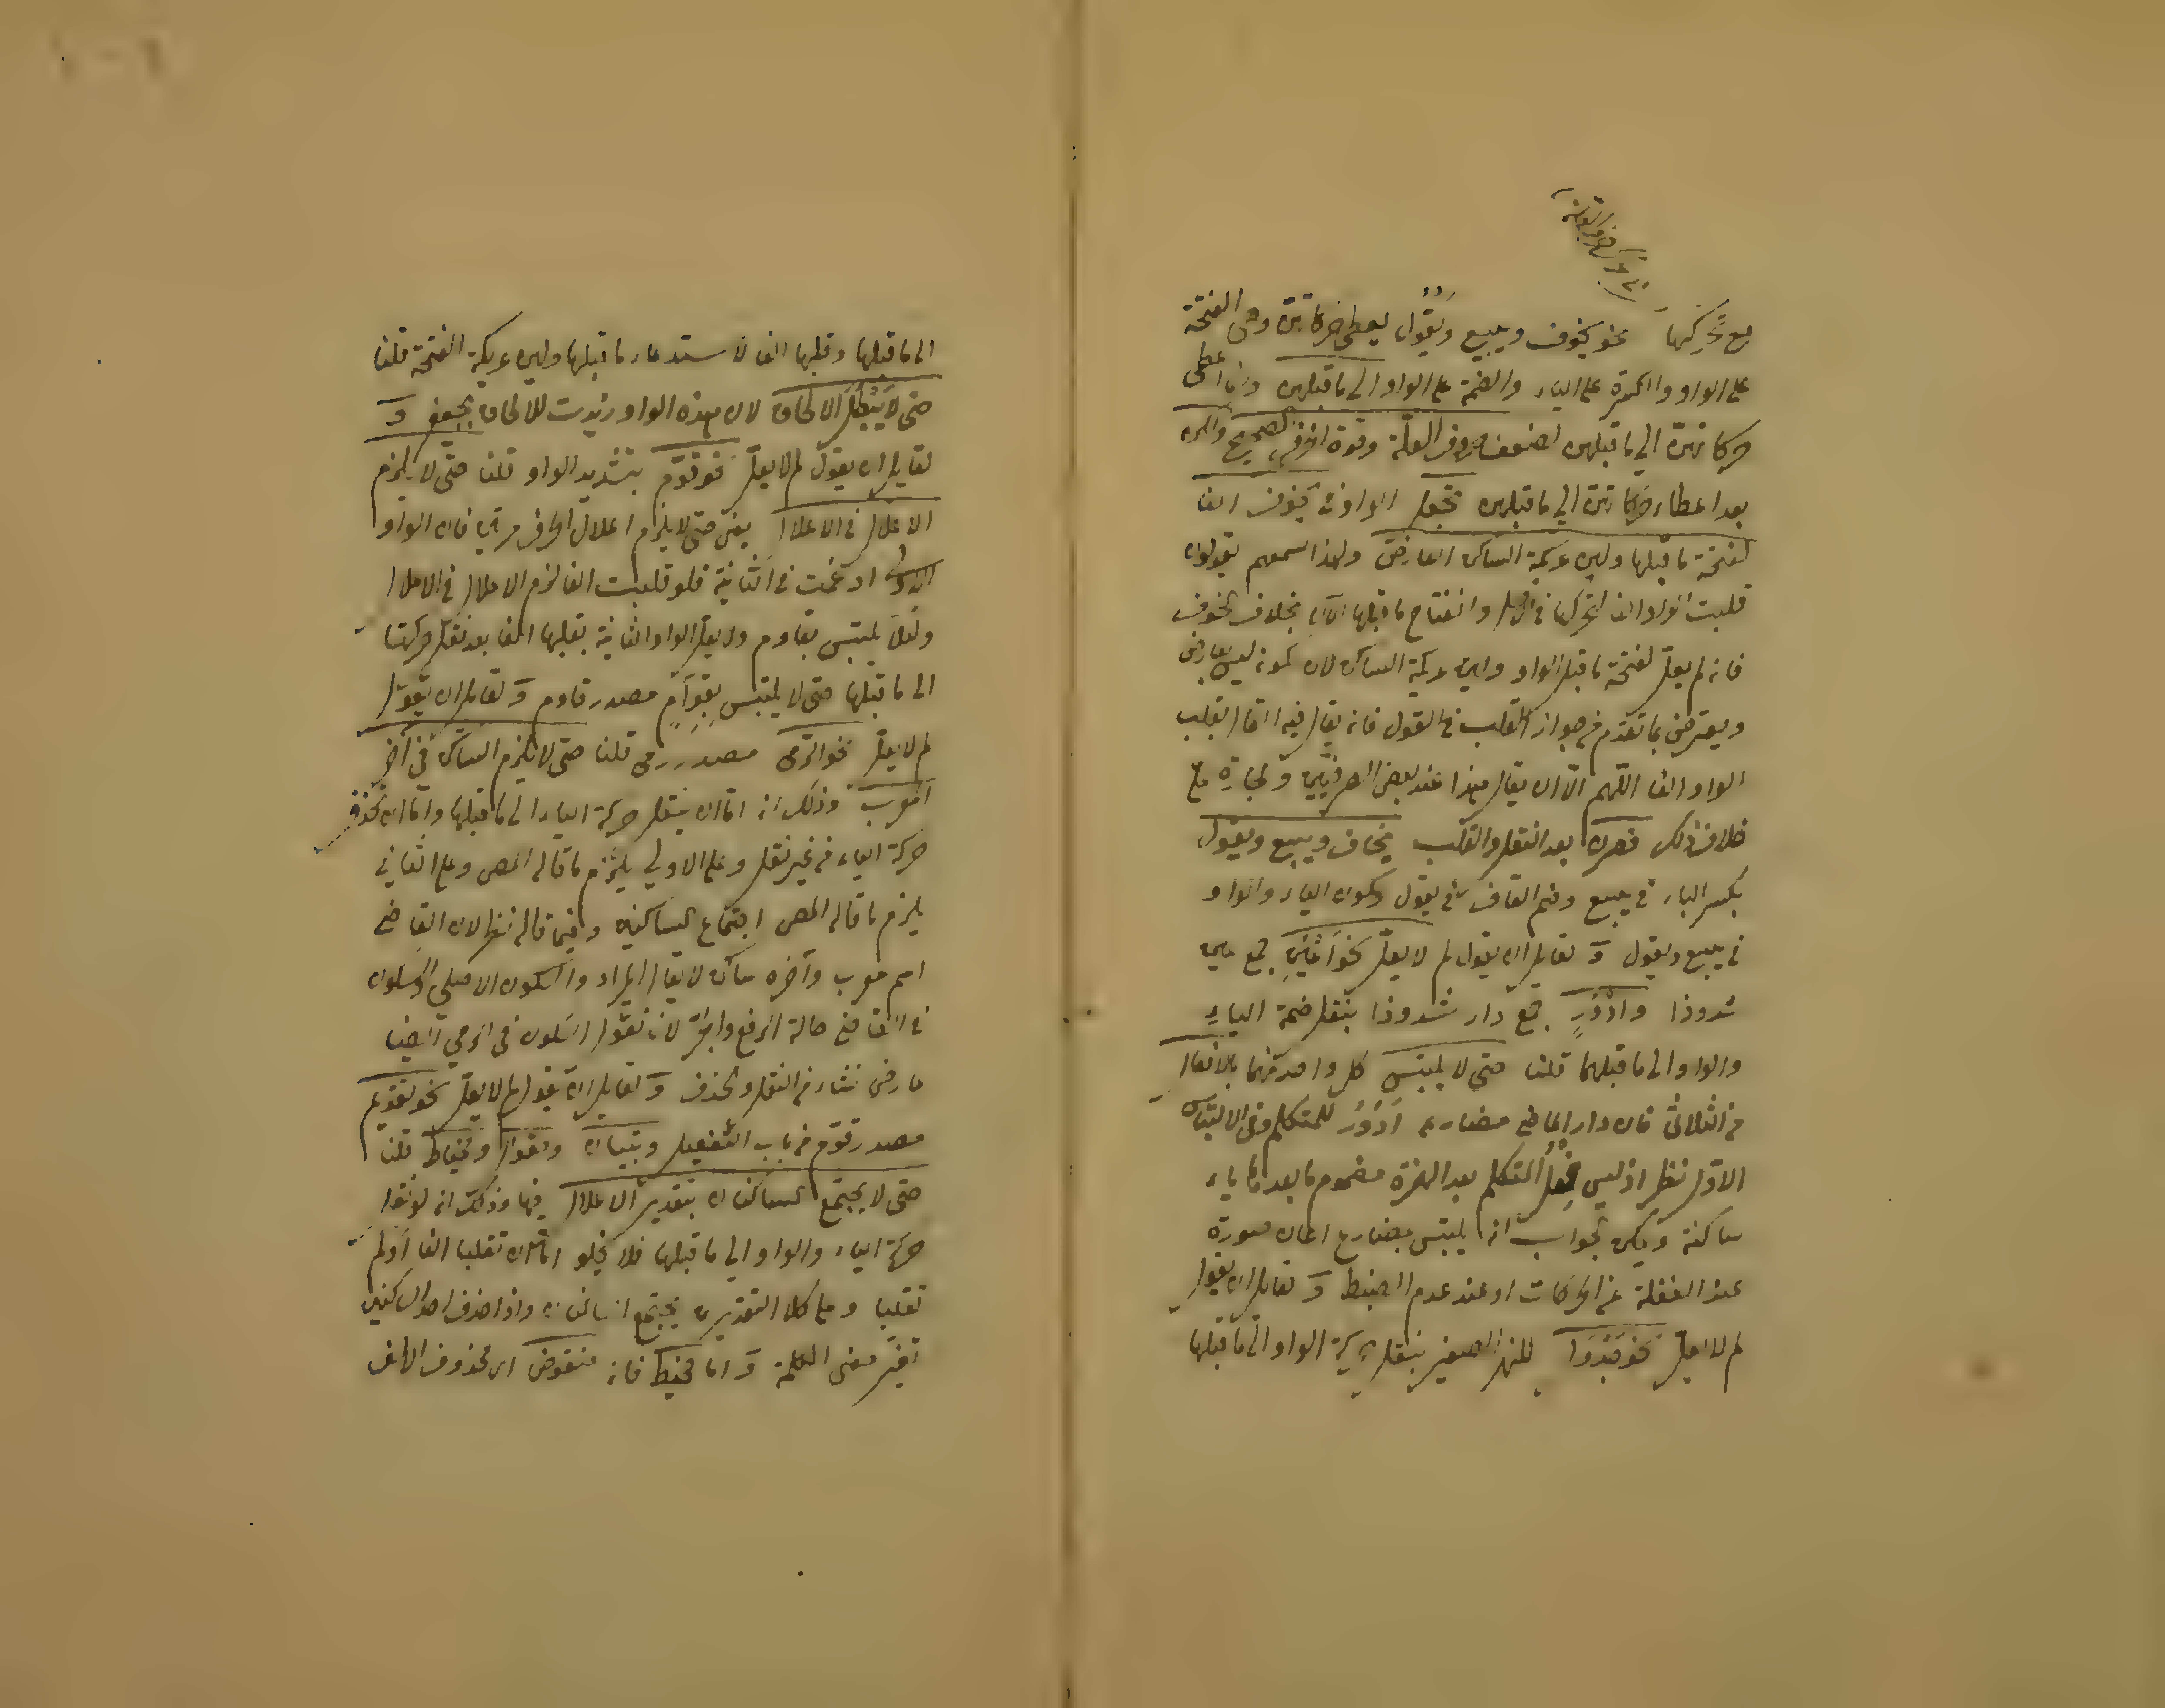 مع تحركها نحو يخوف ويبيع ويقول يعطى حركاتهن وهي الفتحة
على الواو والكسرة على الياء والضمة على الواو الى ما قبلهن وانما اعطى
حركاتهن الى ما قبلهن لضعف حروف العلة وقوة الحرف الصحيح
بعد اعطاء حركاتهن الى ما قبلهن تجعل الواو في يخوف الفا
لفتحة ما قبلها ولين عريكة الساكن العارض ولهذا يقولون
قلبت الواو الفا لتحركها في الاصل وانفتاح ما قبلها الآن بخلاف الخوف
فانه لم يعل لفتحة ما قبل الواو ولين عريكة الساكن لان سكونه ليس بعارض
ويعترض بما تقدم من جواز القلب في القول فانه يقال فيه القال بقلب
الواو الفا اللهم الا ان يقال هذا عند بعض الصرفيين
خلاف ذلك فصرن بعد النقل والقلب يخاف ويبيع ويقول
بكسر الباء في يبيع وضم القاف في يقول وسكون الياء والواو
في يبيع ويقول و لقائل ان يقول لم لا يعل نحو اعين جمع عين
شذوذا وادور جمع دار شذوذا بنقل ضمة الياء
والواو الى ما قبلهما قلنا حتى لا يلتبس كل واحد منهما بالافعال
من الثلاثي فان دار الماضي مضارعه ادور للمتكلم وفي الالتباس
الاول نظر اذ ليس فعل المتكلم بعد الهمزة مضموم ما بعدها ياء
ساكنة ويمكن الجواب انه يلتبس بمضارع اعان صورة
عند الغفلة عن الحركات او عند عدم الضبط و لقائل ان يقول
لم لا يعل نحو جدول للنهر الصغير بنقل حركة الواو الى ما قبلها
الى ما قبلها وقلبها الفا لاستدعاء ما قبلها ولين عريكة الفتحة قلنا
حتى لا يبطل الالحاق لان هذه الواو زيدت للالحاق بجعفر و
لقائل ان يقول لم لا يعل نحو قوم بتشديد الواو قلنا حتى لا يلزم
الاعلال في الاعلال يعني حتى لا يلزم اعلال الحرف مرتين فان الواو
الاولى ادغمت في الثانية فلو قلبت الفا لزم الاعلال في الاعلال
ولئلا يلتبس بقاوم ولا يعل الواو الثانية بقلبها الفا بعد نقل حركتها
الى ما قبلها حتى لا يلتبس بقوام مصدر قاوم و لقائل ان يقول
لم لا يعل نحو الرمي مصدر رمى قلنا حتى لا يلزم الساكن في آخر
المعرب وذلك انه اما ان ينقل حركة الياء الى ما قبلها واما ان تحذف
حركة الياء من غير نقل وعلى الاولى يلزم ما قاله المص وعلى الثاني
يلزم ما قاله المص اجتماع الساكنين وفيما قاله نظر لان القاضي
اسم معرب وآخره ساكن لا يقال المراد والسكون الاصلي والسكون
في القاضي حالة الرفع والجر لانا نقول السكون في الرمي ايضا
عارض نشاء من النقل والحذف و لقائل ان يقول لم لا يعل نحو تقويم
مصدر قوم من باب التفعيل وتبيان ومقوال ومخياط قلنا
حتى لا يجتمع الساكنان بتقدير الاعلال فيها وذلك انه لو نقل
حركة الياء والواو الى ما قبلها فلا يخلو اما ان تقلبا الفا او لم
تقلبا وعلى كلا التقديرين يجتمع الساكنان واذا حذف احد الساكنين
تغير معنى الكلمة و اما مخيط فانه منقوص اى محذوف الالف